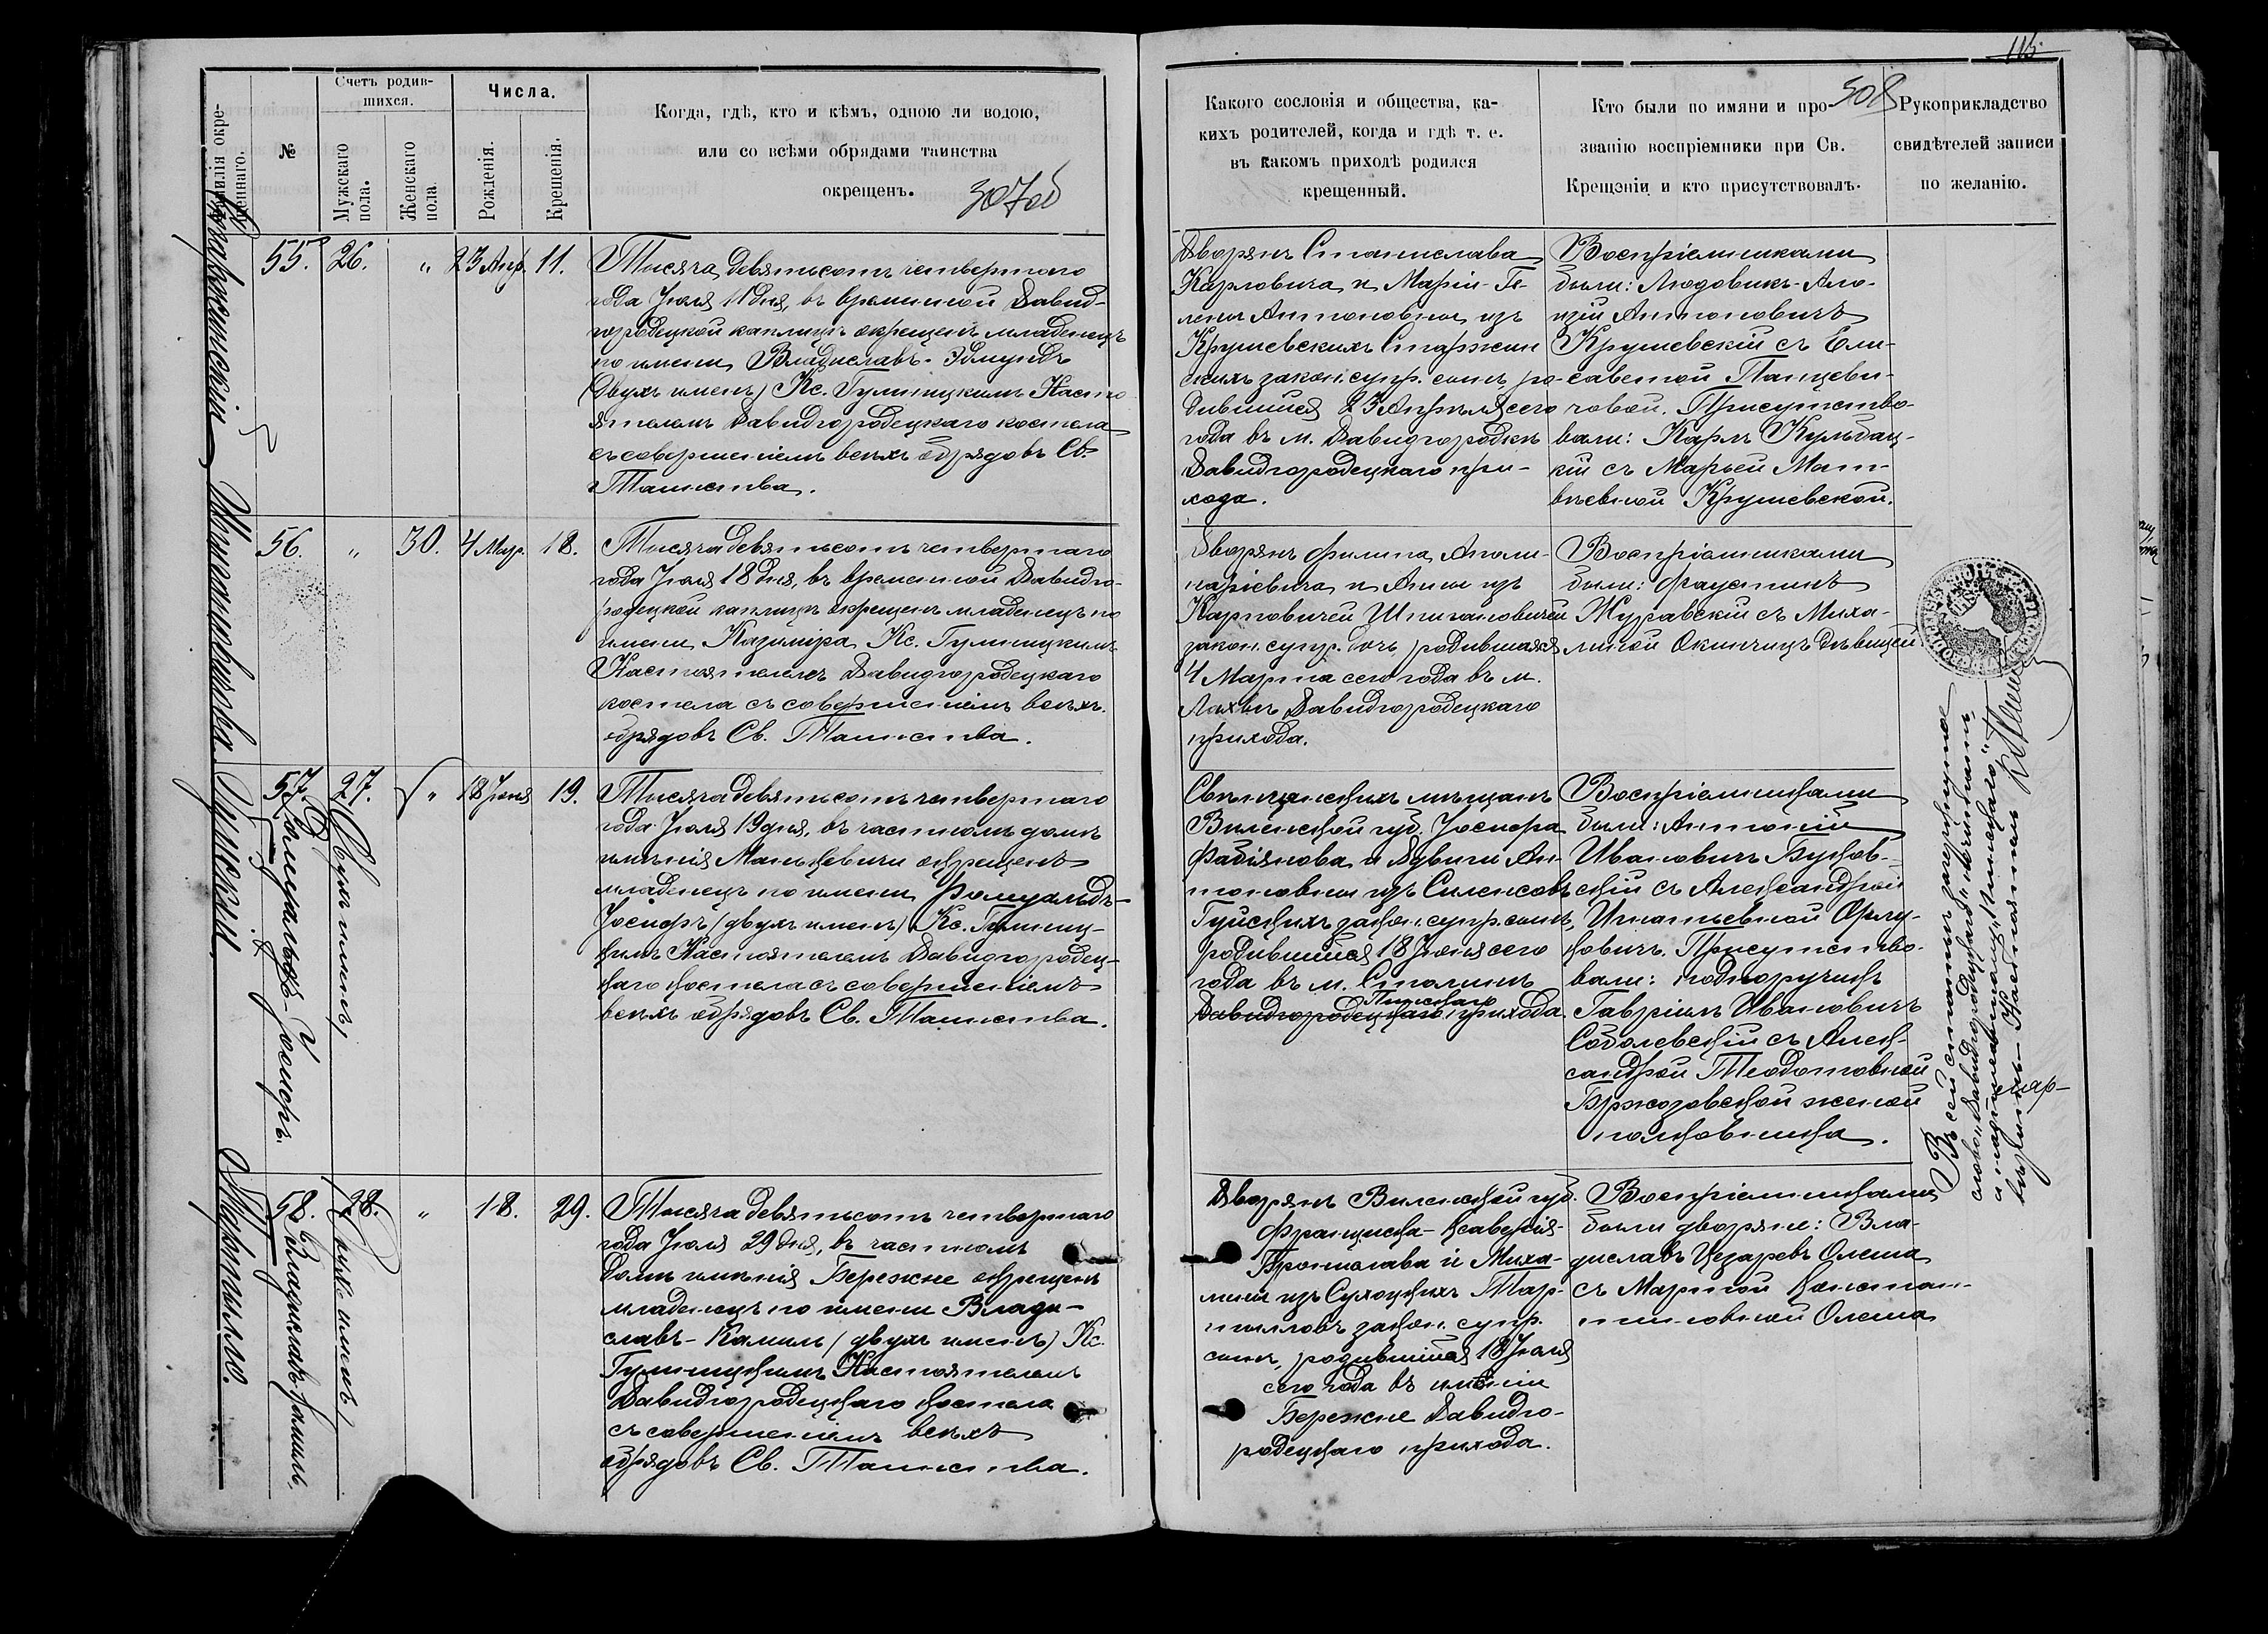 115.
308
307об
Фамилія окре-
щеннаго.
№
Счетъ родив-
шихся.
Мужскаго
пола.
Женскаго
пола.
Числа.
Рожденія.
Крещенія.
Когда, гдѣ, кто и кѣмъ, одною ли водою,
или со всѣми обрядами таинства
окрещенъ.
Какого сословія и общества, ка-
кихъ родителей, когда и гдѣ т. е.
въ какомъ приходѣ родился
крещенный.
Кто были по имяни и про-
званію воспріемники при Св.
Крещэніи и кто присутствовалъ.
Рукоприкладство
свидѣтелей записи
по желанію.
55. 26. „ 23 Апр. 11.
Тысяча девятьсотъ четвертаго
года Іюля 11 дня, въ временной Давид-
городецкой каплицѣ окрещенъ младенецъ
по имени Владиславъ-Эдмундъ
(двухъ именъ) Кс. Гулиницкимъ Насто-
ятелемъ Давидгородецкаго костела
съ совершеніемъ всѣхъ обрядовъ Св.
Таинства.
Дворянъ Станислава
Карловича и Маріи-Ге-
лены Антоновны изъ
Крушевскихъ
скихъ закон. супр. сынъ, ро-
дившійся 23 Апрѣля сего
года въ м. Давидгородкѣ
Давидгородецкаго при-
хода.
Воспріемниками
были: Людовикъ-Ало-
изій Антоновичъ
Крушевскій съ Ели-
саветой
човой. Присутство-
вали: Карлъ Кульбац-
кій съ Марьей Мат-
вѣевной Крушевской.
56. „ 30. 4 Мар. 18.
Шпигановичова
Тысяча девятьсотъ четвертаго
года Іюля 18 дня, въ временной Давидго-
родецкой каплицѣ окрещенъ младенецъ по
имени Казиміра Кс. Гулиницкимъ
Настоятелемъ Давидгородецкаго
костела съ совершеніемъ всѣхъ
обрядовъ Св. Таинства.
Дворянъ Филипа Аполи-
наріевича и Анны изъ
Карповичей Шпигановичей
закон. супр. дочь, родившаяся
4 Марта сего года въ м.
Лахвѣ Давидгородецкаго
прихода.
Воспріемниками
были: Фаустинъ
Журавскій съ Миха-
линой Окинчицъ дѣвицей.
57. 27. „ 18 Іюня 19.
Гуйскій
Ромуальдъ-Іосифъ.
(двухъ именъ)
Тысяча девятьсотъ четвертаго
года Іюля 19 дня, въ частномъ домѣ
имѣнія Маньковичи окрещенъ
младенецъ по имени Ромуальдъ-
Іосифъ (двухъ именъ) Кс. Гулиниц-
кимъ Настоятелемъ Давидгородец-
каго костела съ совершеніемъ
всѣхъ обрядовъ Св. Таинства.
Свѣнцянскихъ мѣщанъ
Виленской губ. Іосифа
Фабіянова и Ядвиги Ан-
тоновны изъ
Гуйскихъ закон. супр. сынъ,
родившійся 18 Іюня сего
года въ м. Столинѣ
Пинскаго
Давидгородецкаго прихода.
Воспріемниками
были: Антоній
Ивановичъ
скій съ Александрой
Игнатьевной
ковичъ. Присутство-
вали: подпоручикъ
Гавріилъ Ивановичъ
Соболевскій съ Алек-
сандрой Теодотовной
Бржозовской женой
полковника.
58. 28. „ 18. 29.
Мартилло.
Владиславъ-Камилъ.
(двухъ именъ)
Тысяча девятьсотъ четвертаго
года Іюля 29 дня, въ частномъ
домѣ имѣнія Бережне окрещенъ
младенецъ по имени Влади-
славъ-Камилъ (двухъ именъ) Кс.
Гулиницкимъ Настоятелемъ
Давидгородецкаго костела
съ совершеніемъ всѣхъ
обрядовъ Св. Таинства.
Дворянъ Виленской губ.
Франциска-Ксаверія-
Бронислава и Миха-
лины изъ Сухоцкихъ Мар-
тилловъ закон. супр.
сынъ, родившійся 18 Іюля
сего года въ имѣніи
Бережне Давидго-
родецкаго прихода.
Воспріемниками
были дворяне: Вла-
диславъ Цезаревъ Олеша
съ Мартой Констан-
тиновной Олеша
Въ сей статьѣ зачеркнутое
слово „Давидгородецкаго“ не читать,
а надписанному „Пинскаго“
вѣрить. Настоятель